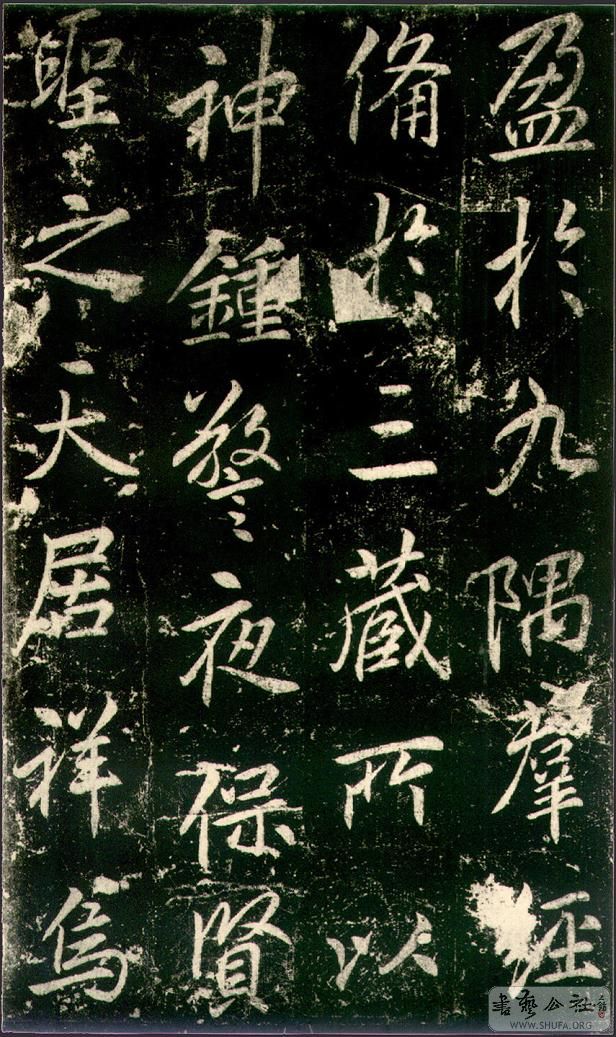 盈於九隅羣經
備於三藏所以
神鍾警夜保賢
聖之天居祥烏
書藝公社
WWW.SHUFA.ORG